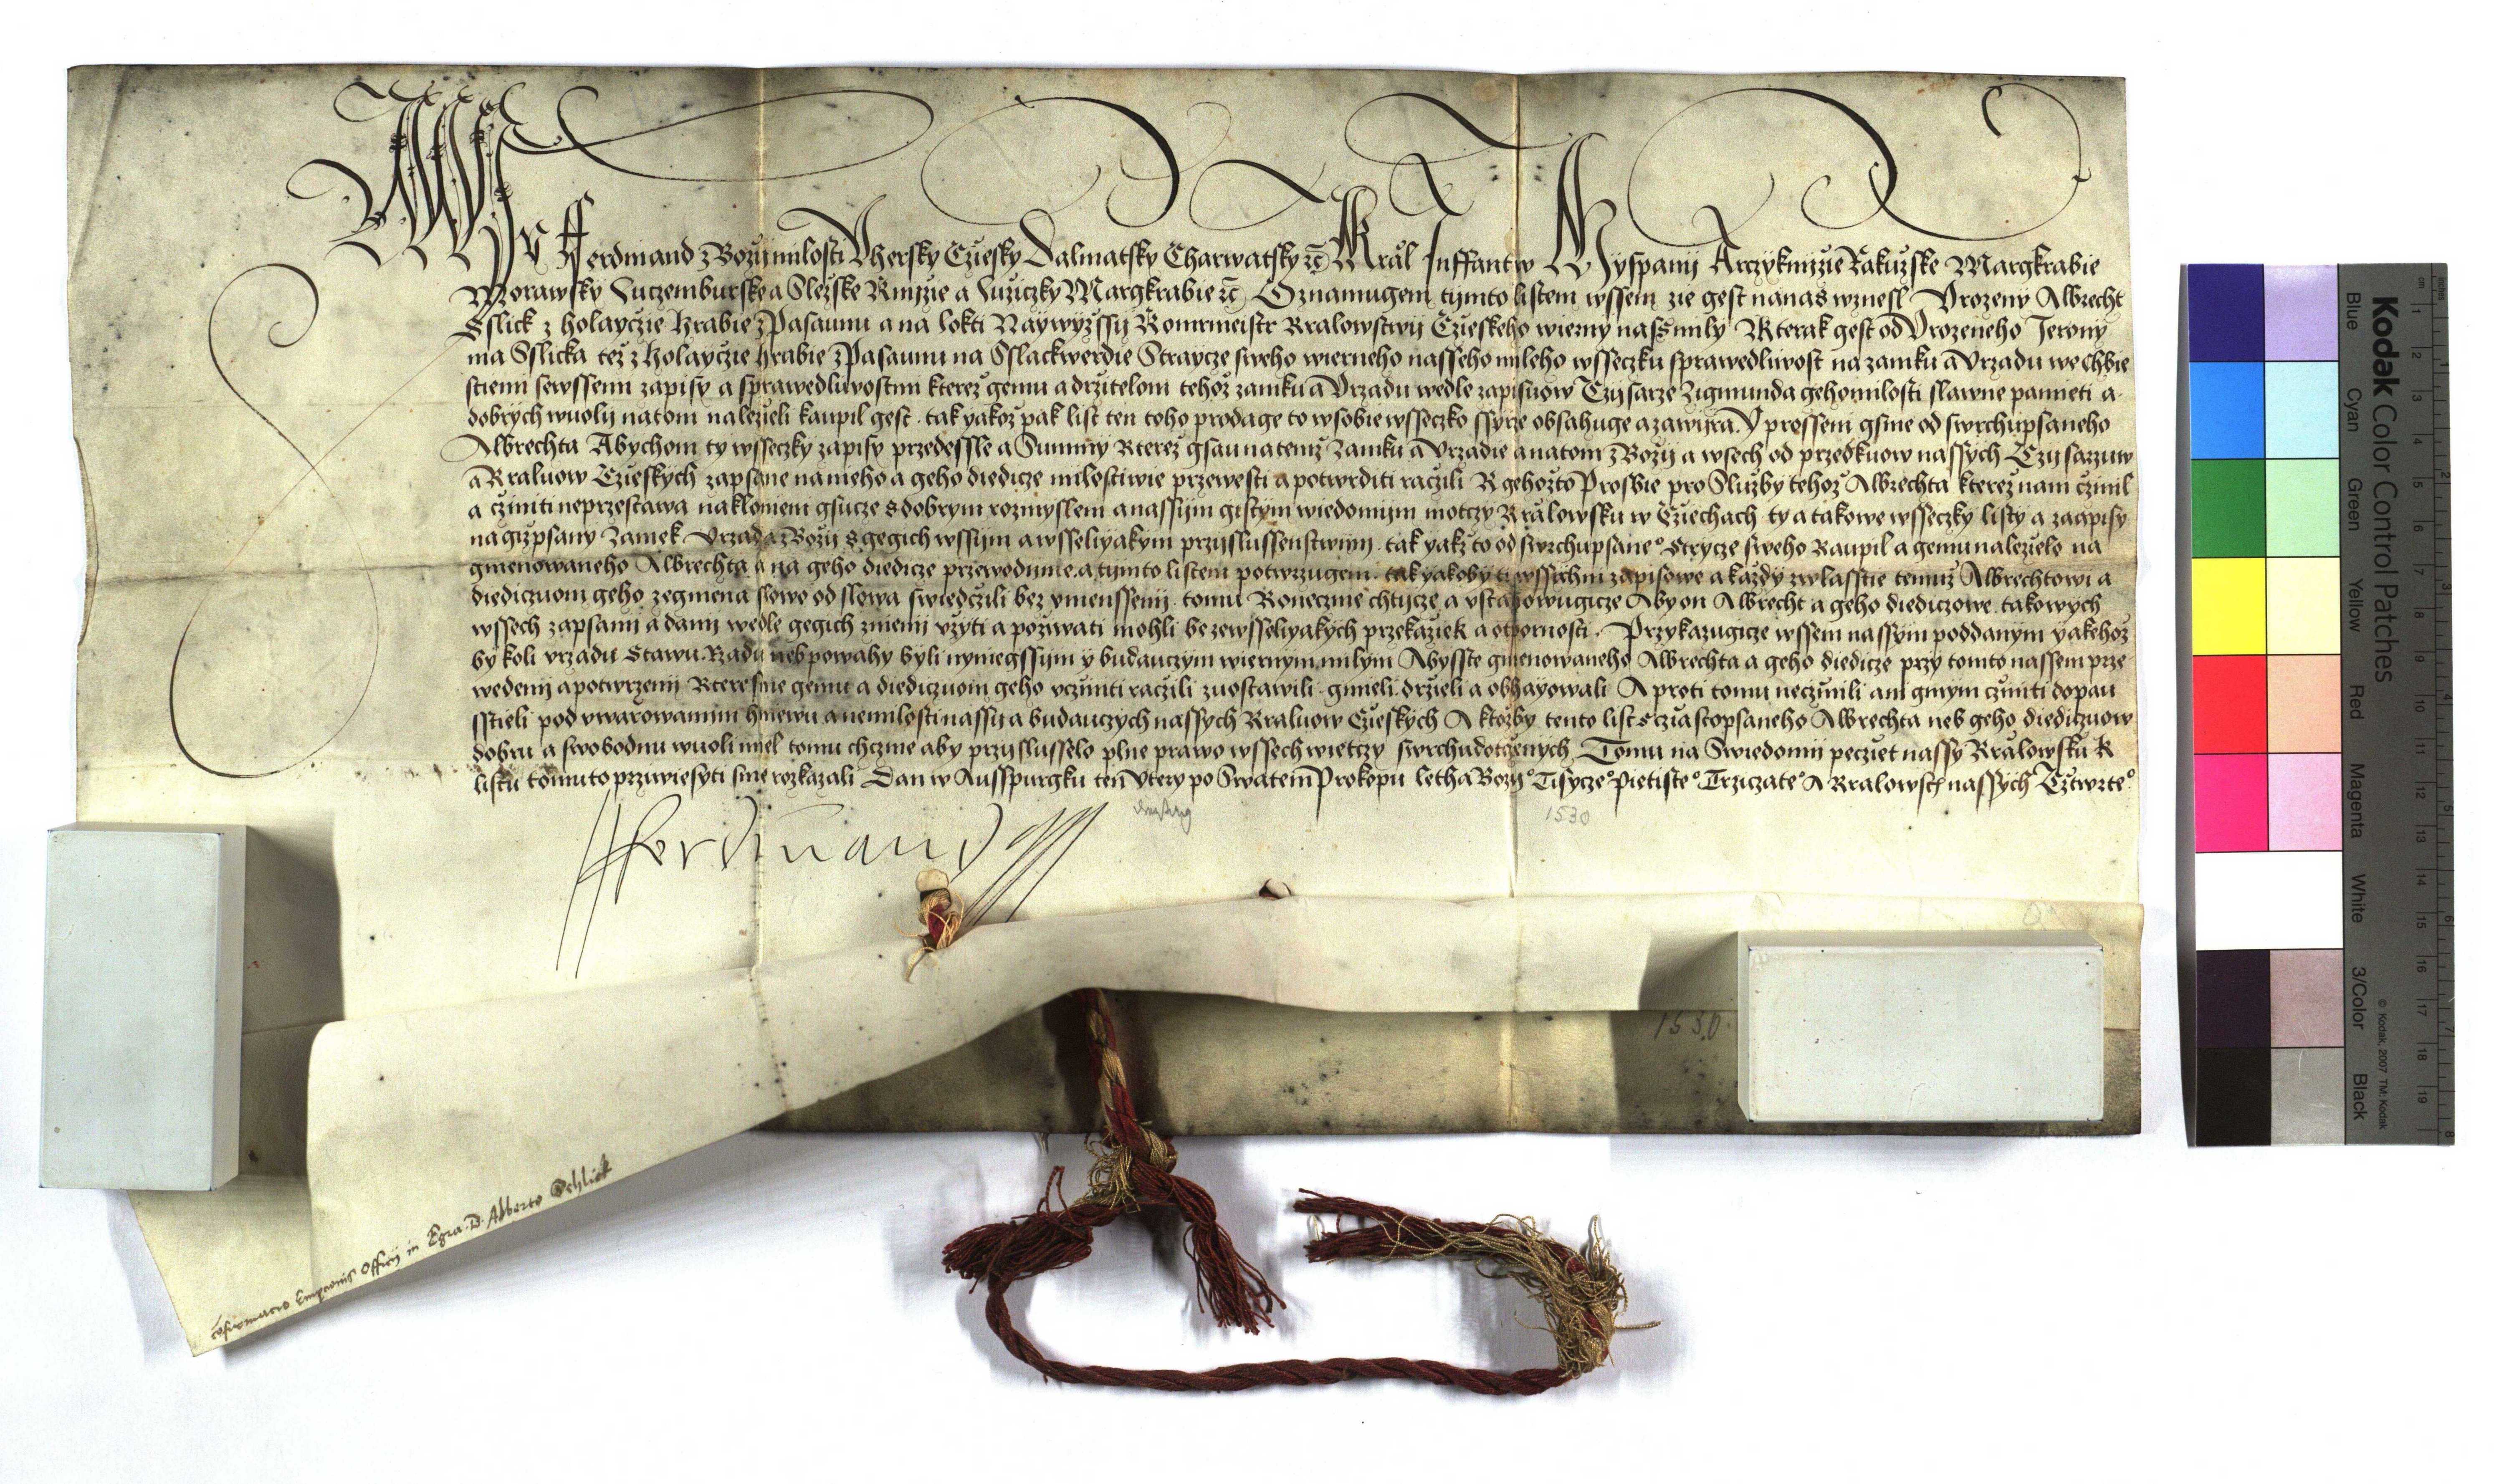 My Ferdinand z Bozij milosti Vhersky Cziesky Dalmatsky Charwatsky ꝛc̄ Kral Inffant w Hyspanij Arczyknizie Rakuzske Margkrabie
Morawsky Luczemburske a Slezske Knizie a Luziczky Margkrabie ꝛc̄ Oznamugem tijmto listem wssem zie gest na nas wznesl Vrozeny Albrecht
Sslick z Holayczie Hrabie z Pasaunu a na Lokti Naywyzssij Komrmeistr Kralowstwij Czieskeho wierny nass mily Kterak gest od Vrozeneho Jerony
ma Sslicka tez z Holayczie hrabie z Pasaunu na Sslackwerdie Straycze sweho wierneho nasseho mileho wsseczku sprawedlivost na zamku a Vrzadu we Chbie
stiemi sewssemi zapisy a sprawedlivostmi kterez gemu a drzitelom tehoz zamku a Vrzadu wedle zapisuow Czijsarze Zigmunda geho milosti slawne pamieti a
dobrych wuolij na tom nalezieli kaupil gest. tak yakoz pak list ten toho prodage to w sobie wsseczko ssyrze obsahuge a zawira. Y prosseni gsme od swrchupsaneho
Albrechta Abychom ty wsseczky zapisy przedessle a Summy Kterez gsau na temz Zamku a Vrzadie a na tom Zbozij a wsech od przedkuow nassych Czijsarzuw
a Kraluow Czieskych zapsane na nieho a geho diedicze milostiwie przewesti a potwrditi raczili K gehozto Prosbie pro Sluzby tehoz Albrechta kterez nam czinil
a cziniti neprzestawa naklonieni gsucze s dobrym rozmyslem a nassijm gistym wiedomijm motczy Kralowsku w Cziechach ty a takowe wsseczky listy a zaapisy
na gizpsany Zamek Vrzad a Zbozij s gegich wssijm a wsseliyakym przijslussenstwim. tak yakz to od swrchupsane° Strycze sweho Kaupil a gemu nalezielo na
gmenowaneho Albrechta a na geho diedicze przewodime. a tijmto listem potwrzugem. tak yakoby ti wssichni zapisowe a kazdy zwlasstie temuz Albrechtowi a
diediczuom geho ze gmena slowo od slowa swiedczili bez vmenssenij. tomu Koneczne chtijcze a vstanowugicze Aby on Albrecht a geho diediczowe. takowych
wssech zapsani a danij wedle gegich znienij vziti a poziwati mohli beze wsseliyakych przekaziek a otpornosti. Przykazugicze wssem nassym poddanym yakehoz
by koli vrzadu Stawu. Rzadu neb powahy byli nyniegssijm y budauczym wiernym milym Abysste gmenowaneho Albrechta a geho diedicze przy tomto nassem prze
wedenij a potwrzenij Ktere sme gemu a diediczuom geho vcziniti raczili zuostawili. gmieli. drzieli a obhayowali A proti tomu neczinili ani gmym cziniti dopau
sstieli pod vwarowanim hniewu a nemilosti nassij a budauczych nassych Kraluow Czieskych A ktozby tento list s cziastopsaneho Albrechta neb geho diediczuow
dobru a swobodnu wuoli miel tomu chczme aby przijslusselo plne prawo wssech wietczy swrchudotczenych Tomu na Swiedomij pecziet nassy Kralowsku K
listu tomuto przywiesyti sme rozkazali Dan w Ausspurgku ten Vtery po Swatem Prokopu letha Bozij° Tisycze° Pietiste° Trzicate° A Kralowstw nassych Cztwrte°
Ferdinand
1530
1530
Confirmatio Emptionis Officij in Egra D. Alberto Schlick
Kodak Color Control Patches
Blue Cyan Green Yellow Red Magenta White 3/Color Black
© Kodak, 2007 TM: Kodak
inches 1 2 3 4 5 6 7 8
cm 1 2 3 4 5 6 7 8 9 10 11 12 13 14 15 16 17 18 19